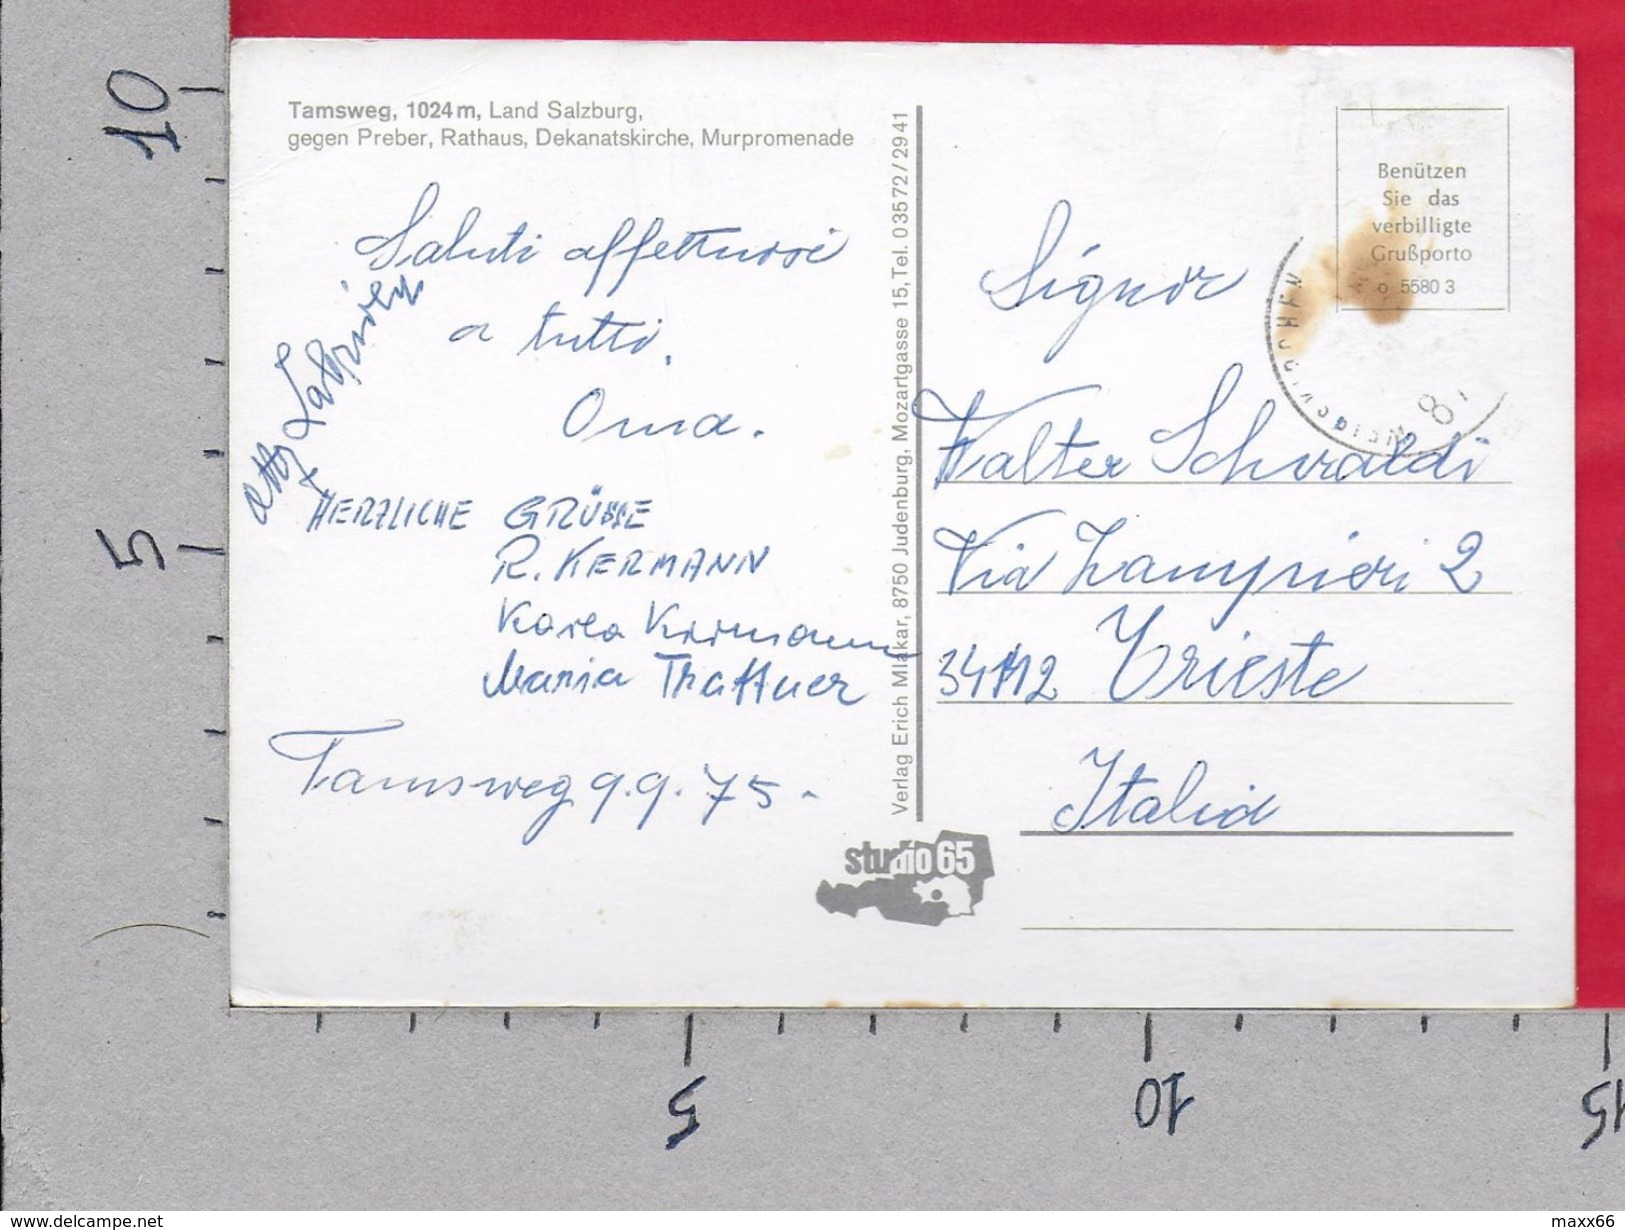 Tamsweg, 1024 m, Land Salzburg,
gegen Preber, Rathaus, Dekanatskirche, Murpromenade
Saluti affettuosi
a tutti.
Oma.
HERZLICHE GRÜSSE
R. KERMANN
Karla Kermann
Maria Thaffner
Tamsweg 9.9.75-
Verlag Erich Mlakar, 8750 Judenburg, Mozartgasse 15, Tel. 03572/2941
studio 65
Benützen
Sie das
verbilligte
Grußporto
o 5580 3
Signor
Walter Schwaldi
Via Zampieri 2
34112 Trieste
Italia
10
5
5
10
15
www.delcampe.net
maxx66